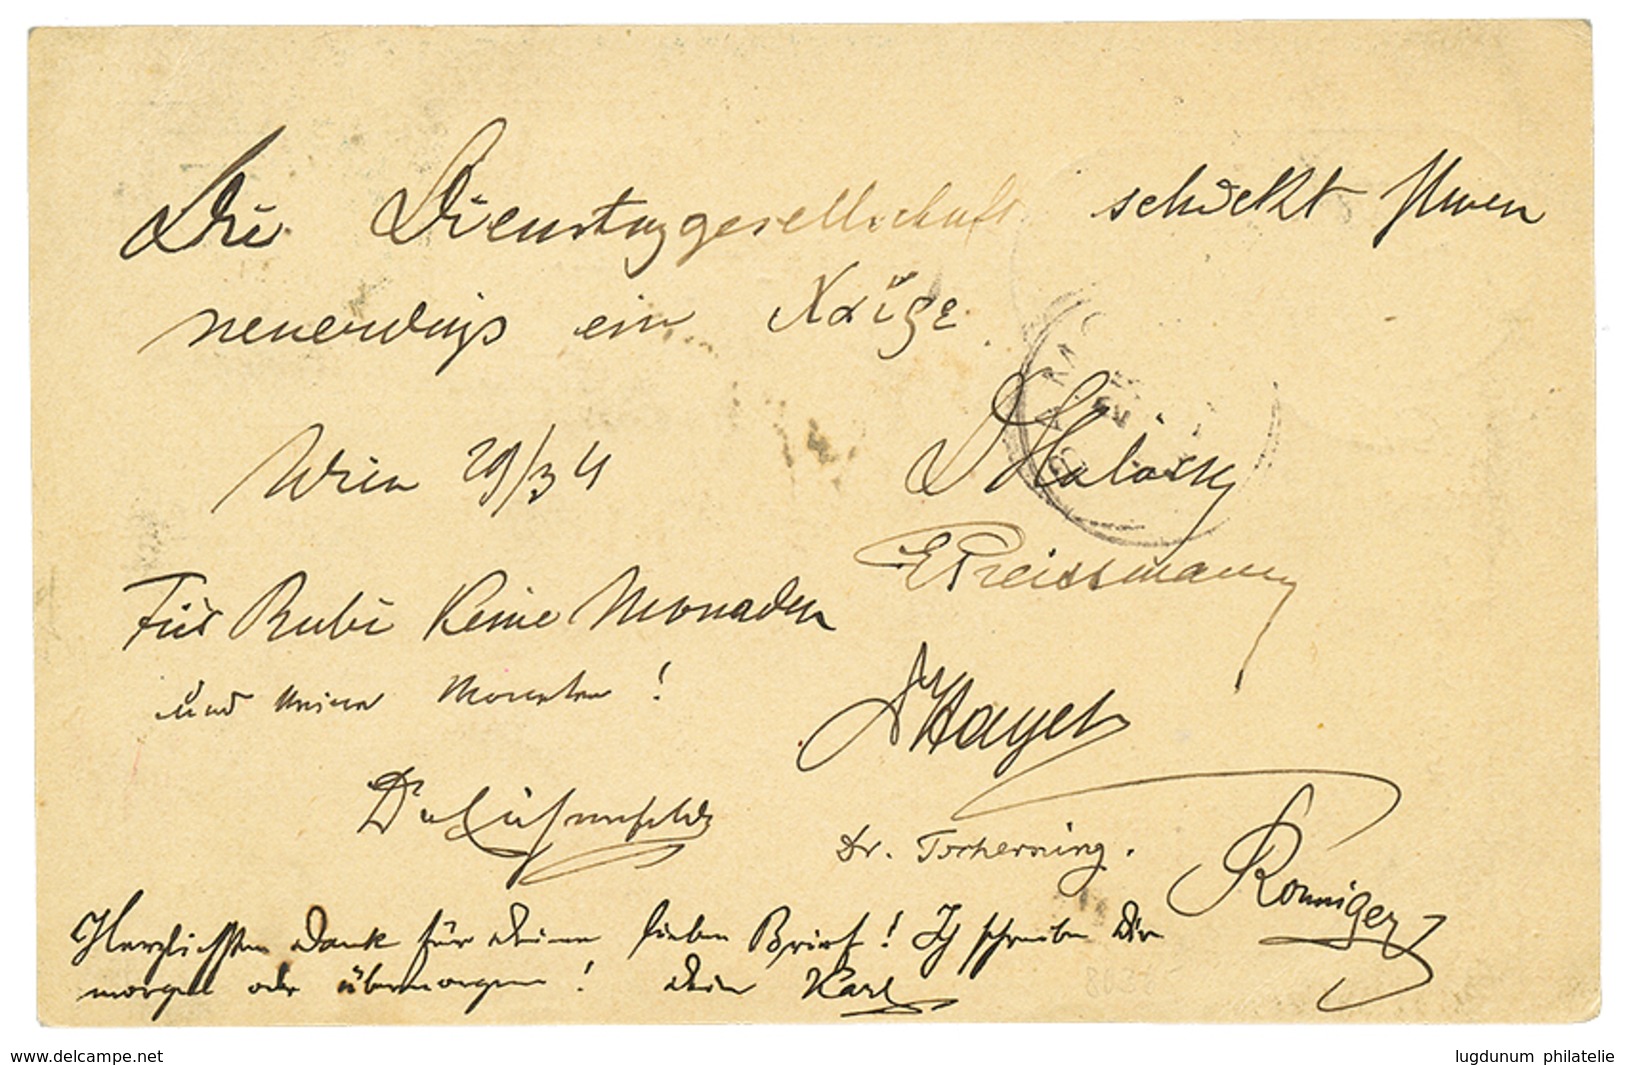 Die Dienstaggesellschaft schickt Ihnen
neuerdings ein
Wien 29/3 4
E Preissmann
Für Rubi keine Monaden
und keine Moneten!
A Mayer
Dr.
Dr. Tscherning.
Ronniger
Herzlichsten Dank für deinen lieben Brief! Ich schreibe Dir
morgen oder übermorgen! Dein Karl
www.delcampe.net
lugdunum philatelie